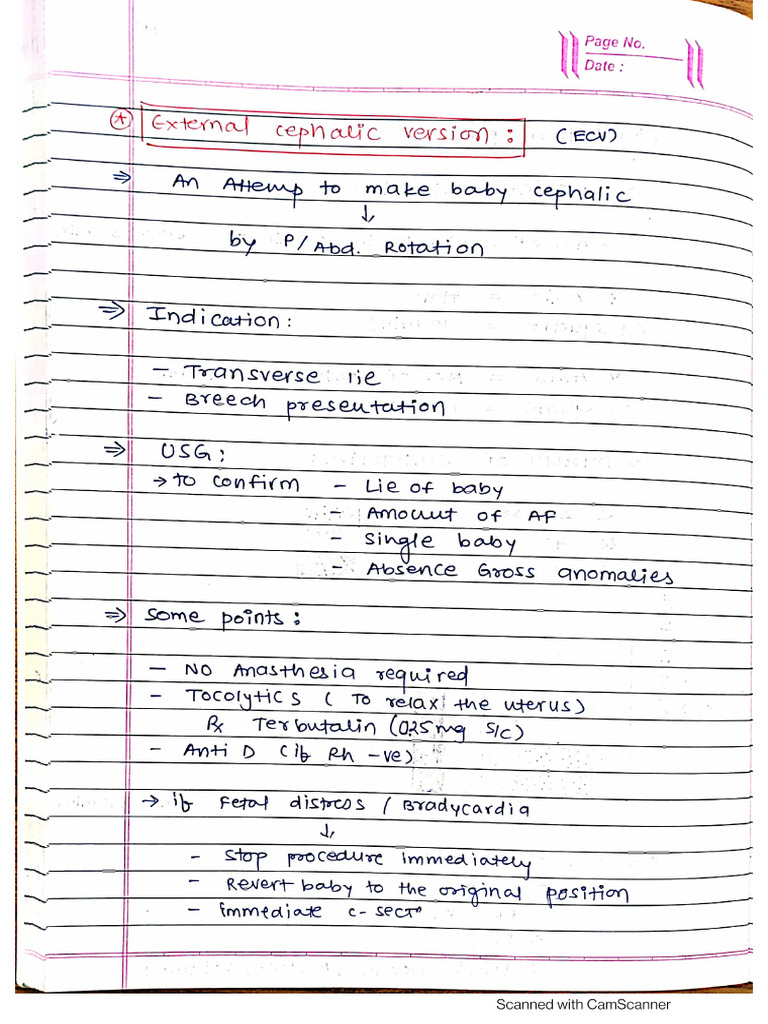 Page No.
Date :
* External cephalic version : (ECV)
⇒ An Attemp to make baby cephalic
↓
by P/Abd. Rotation
⇒ Indication:
- Transverse lie
- Breech presentation
⇒ USG:
→ to confirm - Lie of baby
- Amount of AF
- Single baby
- Absence Gross anomalies
⇒ Some points:
- No Anasthesia required
- Tocolytics ( To relax the uterus)
Rx Terbutalin (0.25mg S/C)
- Anti D (if Rh -ve)
→ if Fetal distress / Bradycardia
↓
- Stop procedure immediately
- Revert baby to the original position
- immediate c-sectⁿ
Scanned with CamScanner